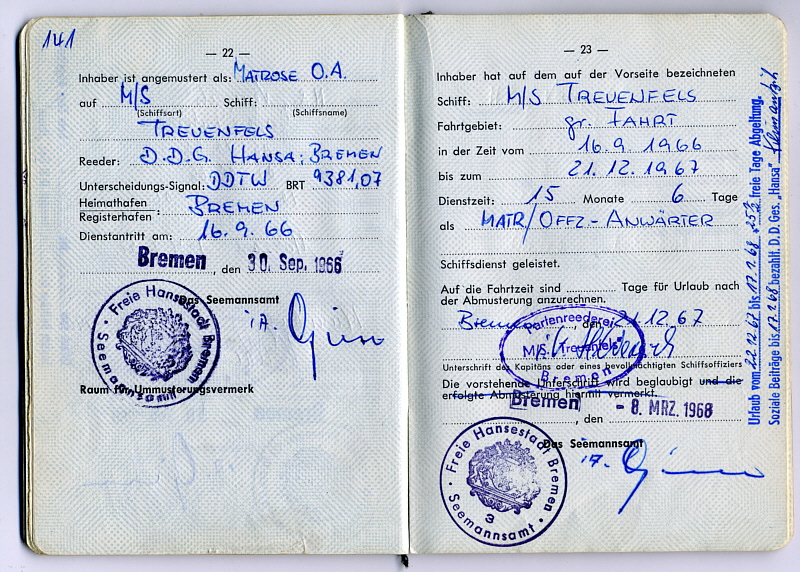 141
— 22 —
Inhaber ist angemustert als: MATROSE O.A.
auf M/S Schiff:
(Schiffsart) (Schiffsname)
TREUENFELS
Reeder: D.D.G. HANSA; BREMEN
Unterscheidungs-Signal: DDTW BRT 9381,07
Heimathafen
Registerhafen : BREMEN
Dienstantritt am: 16.9.66
Bremen, den 30. Sep. 1966
Das Seemannsamt
i.A.
Freie Hansestadt Bremen
Seemannsamt
Raum für Ummusterungsvermerk
— 23 —
Inhaber hat auf dem auf der Vorseite bezeichneten
Schiff: M/S TREUENFELS
Fahrtgebiet: gr. FAHRT
in der Zeit vom 16.9.1966
bis zum 21.12.1967
Dienstzeit: 15 Monate 6 Tage
als MATR/OFFZ-ANWÄRTER
Schiffsdienst geleistet.
Auf die Fahrtzeit sind Tage für Urlaub nach
der Abmusterung anzurechnen.
Bremen, den 21.12.67
Partenreederei
M/S. "Treuenfels"
Bremen
Unterschrift des Kapitäns oder eines bevollmächtigten Schiffsoffiziers
Die vorstehende Unterschrift wird beglaubigt und die
erfolgte Abmusterung hiermit vermerkt.
Bremen, den - 8. MRZ. 1968
Das Seemannsamt
i.A.
Freie Hansestadt Bremen
Seemannsamt
3
Urlaub vom 22.12.67 bis 17.2.68 freie Tage Abgeltung.
Soziale Beiträge bis 17.2.68 bezahlt. D. D. Ges. „Hansa"